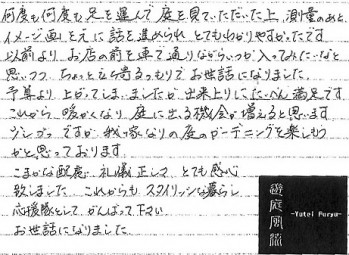 何度も何度も足を運んで庭を見ていただいた上、測量のあと、
イメージ画をもとに話を進められ とてもわかりやすかったです
以前より お店の前を車で通りながらいつか入ってみたいなと
思いつつ、ちょっと立ち寄るつもりでお世話になりました。
予算より 上がってしまいましたが 出来上りに たいへん満足です。
これから 暖かくなり 庭に出る機会が増えると思います
シンプルですが 我が家なりの庭のガーデニングを楽しもう
かと思っております
こまかな配慮、礼儀正しく とても感心
致しました これからも スタイリッシュな暮らし
応援隊として がんばって下さい
お世話になりました
遊庭風流
-Yutei Furyu-